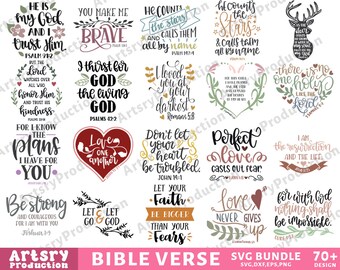 HE IS
my GOD,
and I
trust Him
PSALM 91:2
YOU MAKE
ME
BRAVE
HE COUNTS
the stars
AND CALLS THEM
all by name
He Counts
the STARS
& calls them
all by name
But the
Lord
honor Him
AND TRUST HIS
KINDNESS
I thirst for
GOD
the living
GOD
I loved
you at
your
darkest
Romans 5:8
there is
no one
holy
like the
Lord
FOR I KNOW
the
Plans
I HAVE FOR
YOU
Love
one
another
Don't let
your heart
be troubled.
JOHN 14:1
Perfect
love
casts out
fear
I AM
the resurrection
AND THE
life
Be strong
AND COURAGEOUS
FOR I AM WITH YOU
LET GO
& LET
GOD
LET YOUR
FAITH
BE BIGGER
THAN YOUR
Fears
Love
NEVER GIVES
up
for with
God
nothing
shall be
impossible.
Artsry
Production
BIBLE VERSE
SVG BUNDLE
SVG,DXF,EPS,PNG
70+
DESIGN